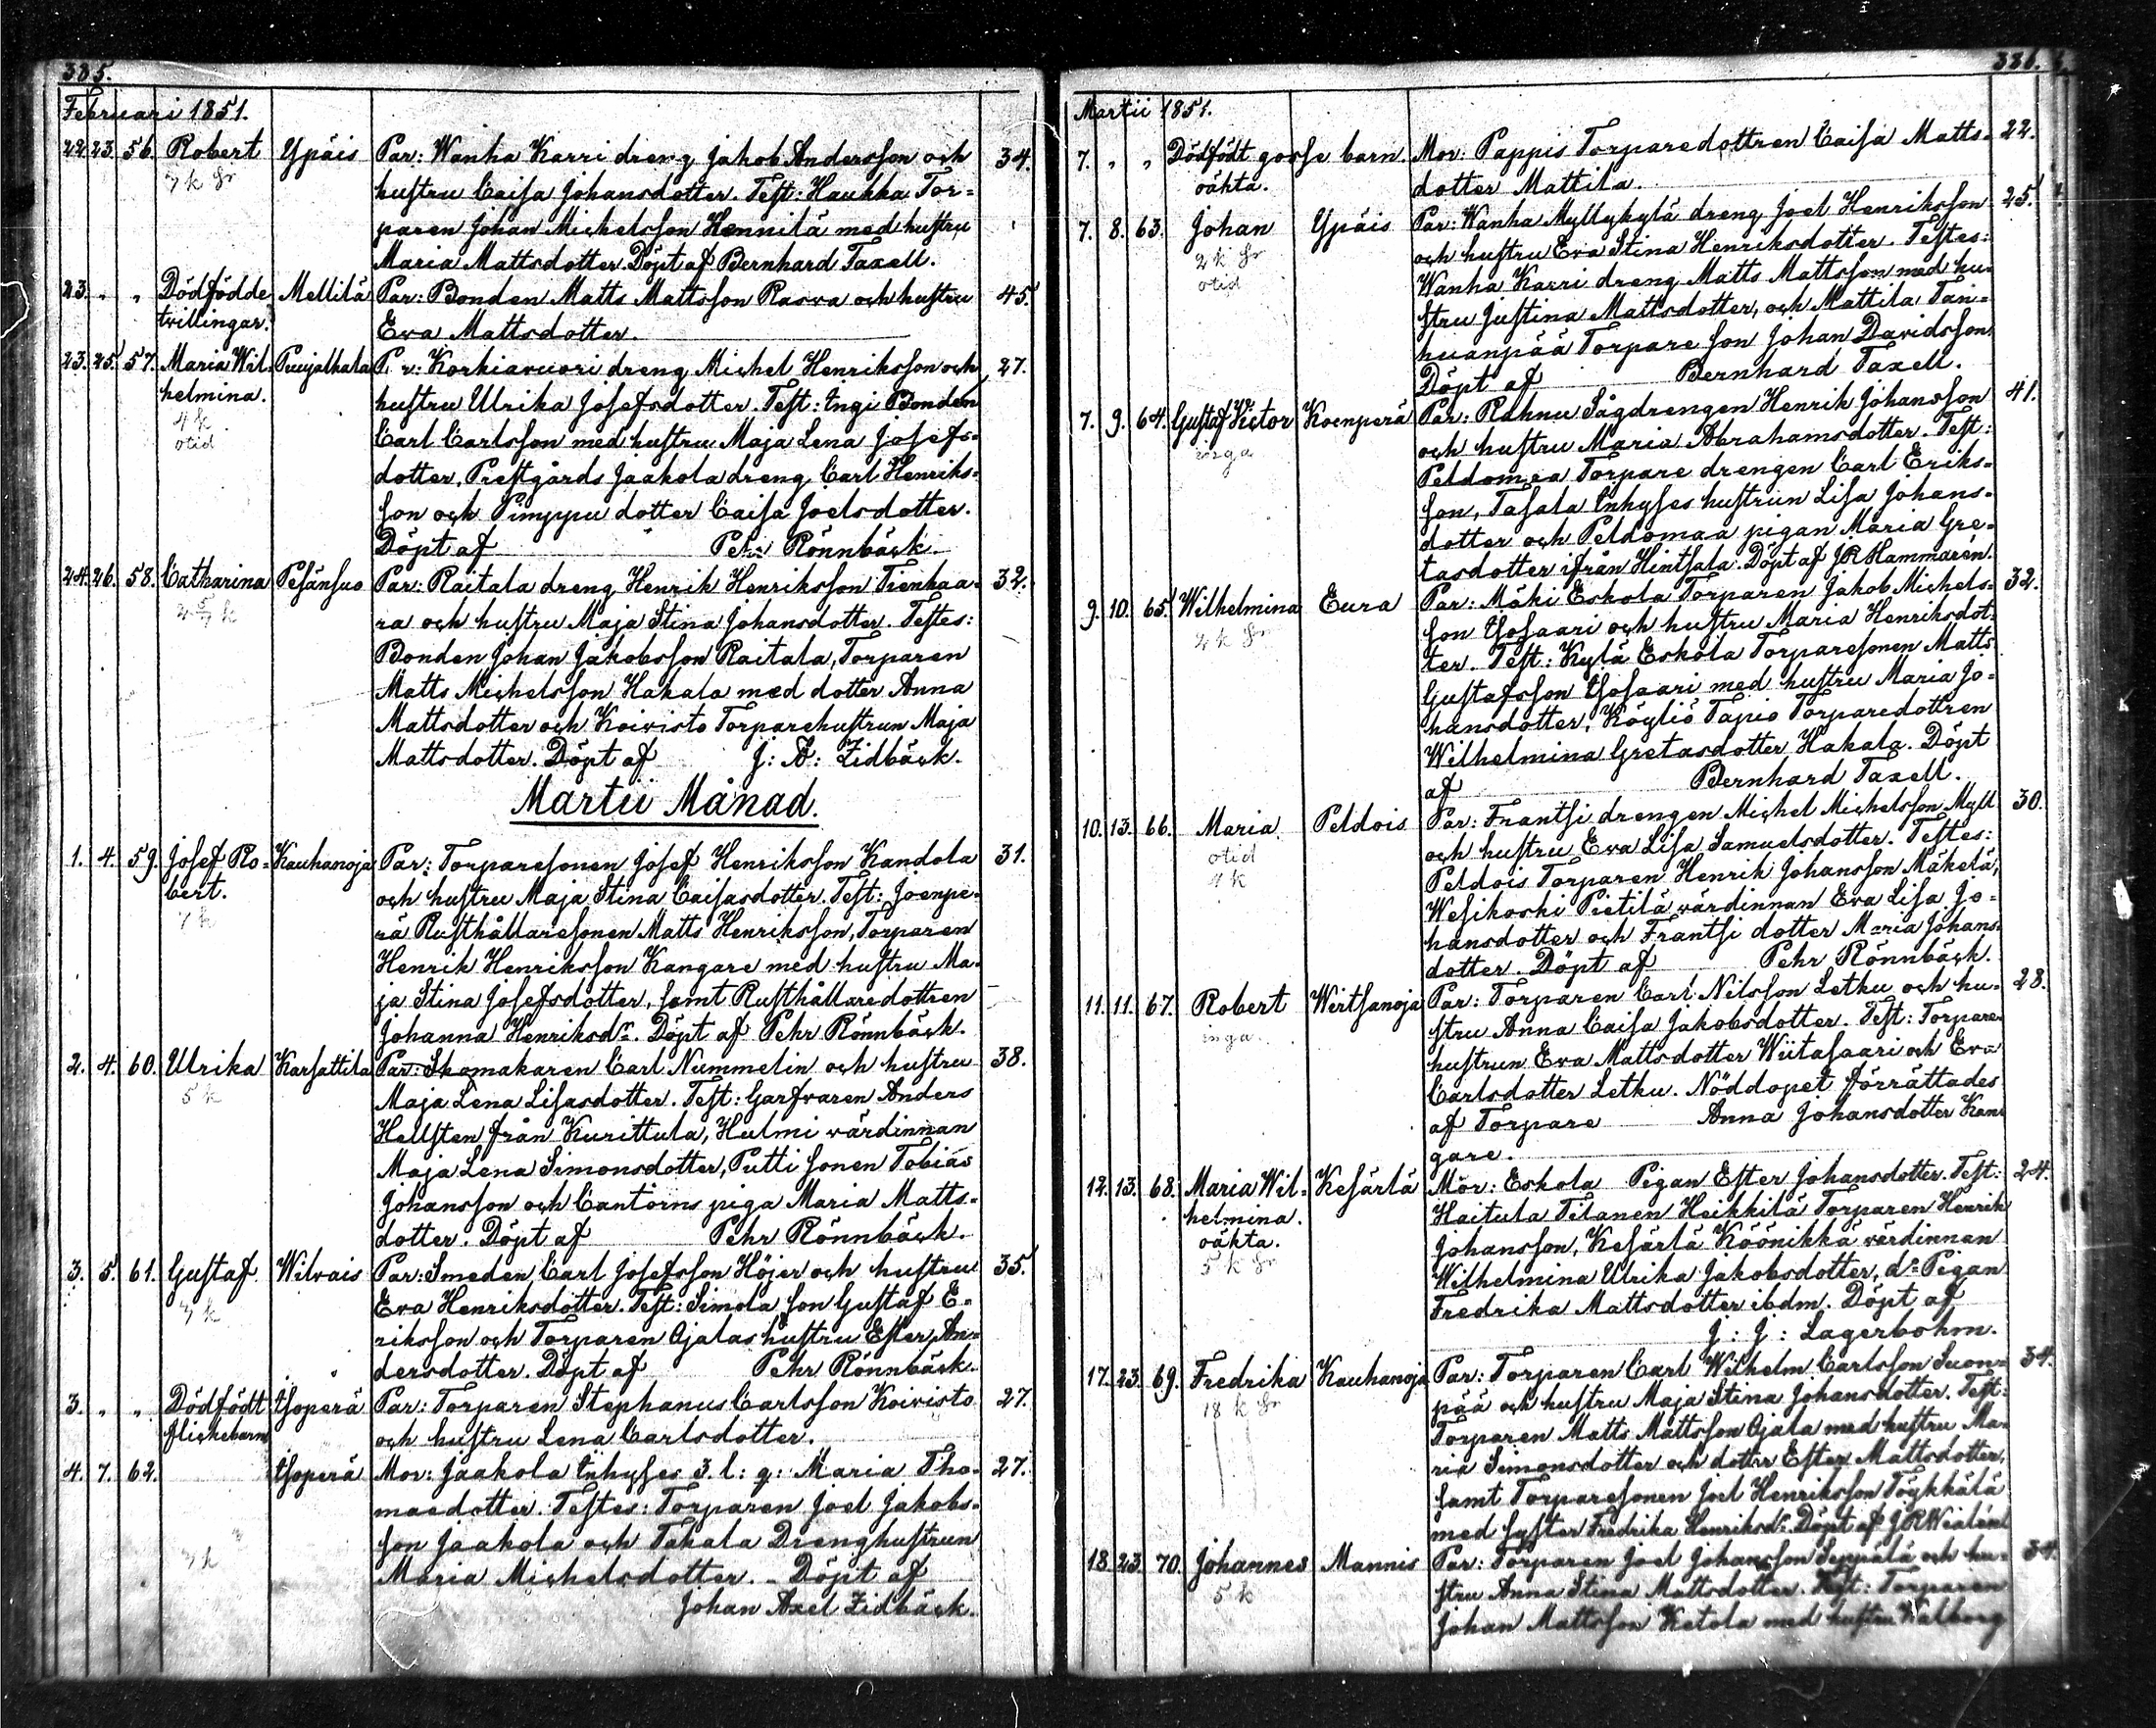 385.
Februari 1851.
22. 23. 56. Robert Ypäis Par: Wanha Karri dreng Jakob Andersson och 34.
hustru Caisa Johansdotter. Test: Haukka Tor-
paren Johan Michelsson Hennilä med hustru
Maria Mattsdotter. Döpt af Bernhard Taxell.
23. " " Dödfödde Mellilä Par: Bonden Matts Mattsson Rasva och hustru 45.
tvillingar. Eva Mattsdotter.
23. 25. 57. Maria Wil- Puujalkala Par: Korkiavuori dreng Michel Henriksson och 27.
helmina. hustru Ulrika Josefsdotter. Test: Yngi Bonden
4 k Carl Carlsson med hustru Maja Lena Josefs-
otid dotter, Prestgårds Jaakola dreng Carl Henriks-
son och Pimppu dotter Caisa Joelsdotter.
Döpt af Pehr Rönnbäck.
24. 26. 58. Catharina Pesänsuo Par: Raitala dreng Henrik Henriksson Trenkaa- 32.
ra och hustru Maja Stina Johansdotter. Testes:
Bonden Johan Jakobsson Raitala, Torparen
Matts Michelsson Hakala med dotter Anna
Mattsdotter och Koivisto Torparehustrun Maja
Mattsdotter. Döpt af J: A: Zidbäck.
Martii Månad.
1. 4. 59. Josef Ro- Kauhanoja Par: Torparesonen Josef Henriksson Kandola 31.
bert. och hustru Maja Stina Caisasdotter. Test: Joenpe-
7 k rä Rusthållaresonen Matts Henriksson, Torparen
Henrik Henriksson Kangare med hustru Ma-
ja Stina Josefsdotter, samt Rusthållaredottren
Johanna Henriksdr. Döpt af Pehr Rönnbäck.
2. 4. 60. Ulrika Karsattila Par: Skomakaren Carl Nummelin och hustru 38.
5 k Maja Lena Lisasdotter. Test: Garfvaren Anders
Hellsten från Kurittula, Hulmi värdinnan
Maja Lena Simonsdotter, Putti sonen Tobias
Johansson och Cantorns piga Maria Matts-
dotter. Döpt af Pehr Rönnbäck.
3. 5. 61. Gustaf Wilvais Par: Smeden Carl Josefsson Höjer och hustru 35.
Eva Henriksdotter. Test: Simola son Gustaf E-
riksson och Torparen Ojalas hustru Ester An-
dersdotter. Döpt af Pehr Rönnbäck.
3. " " Dödfödt Isoperä Par: Torparen Stephanus Carlsson Koivisto 27.
flickebarn och hustru Lena Carlsdotter.
4. 7. 62. Isoperä Mor: Jaakola Inhyses 3. l: g: Maria Tho- 27.
masdotter. Testes: Torparen Joel Jakobs-
son Jaakola och Takala Drenghustrun
Maria Michelsdotter. Döpt af
Johan Axel Zidbäck.
386.
Martii 1851.
7. " " Dödfödt gosse barn. Mor: Pappis Torparedottren Caisa Matts- 22.
oäkta. dotter Mattila.
7. 8. 63. Johan Ypäis Par: Wanha Myllykylä dreng Joel Henriksson 25.
2 k sr och hustru Eva Stina Henriksdotter. Testes:
otid Wanha Karri dreng Matts Mattsson med hu-
stru Justina Mattsdotter, och Mattila Tan-
huanpää Torpare son Johan Davidsson.
Döpt af Bernhard Taxell.
7. 9. 64. Gustaf Victor Koenperä Par: Rahnu Sågdrengen Henrik Johansson 41.
inga och hustru Maria Abrahamsdotter. Test:
Peldomaa Torpare drengen Carl Eriks-
son, Tasala Inhyses hustrun Lisa Johans-
dotter och Peldomaa pigan Maria Gre-
tasdotter ifrån Hintsala. Döpt af JR Hammarén.
9. 10. 65. Wilhelmina Eura Par: Mäki Eskola Torparen Jakob Michels- 32.
2 k sr son Ysosaari och hustru Maria Henriksdot-
ter. Test: Kylä Eskola Torparesonen Matts
Gustafsson Ysosaari med hustru Maria Jo-
hansdotter, Köyliö Tapio Torparedottren
Wilhelmina Gretasdotter Hakala. Döpt
af Bernhard Taxell.
10. 13. 66. Maria Peldois Par: Frantsi drengen Michel Michelsson Myll 30.
otid och hustru Eva Lisa Samuelsdotter. Testes:
4 k Peldois Torparen Henrik Johansson Mäkelä,
Wesikoski Pietilä värdinnan Eva Lisa Jo-
hansdotter och Frantsi dotter Maria Johans-
dotter. Döpt af Pehr Rönnbäck.
11. 11. 67. Robert Wirtsanoja Par: Torparen Carl Nilsson Letku och hu- 28.
inga. stru Anna Caisa Jakobsdotter. Test: Torpare-
hustrun Eva Mattsdotter Wiitasaari och Eva
Carlsdotter Letku. Nöddopet förrättades
af Torpare Anna Johansdotter Kan-
gare.
12. 13. 68. Maria Wil- Kesärlä Mor: Eskola Pigan Ester Johansdotter. Test: 24.
helmina. Haitula Titanen Heikkilä Torparen Henrik
oäkta. Johansson, Kesärlä Köönikkä värdinnan
5 k sr Wilhelmina Ulrika Jakobsdotter, do Pigan
Fredrika Mattsdotter ibdm. Döpt af
J: J: Lagerbohm.
17. 23. 69. Fredrika Kauhanoja Par: Torparen Carl Wilhelm Carlsson Suon- 34.
18 k sr pää och hustru Maja Stina Johansdotter. Test:
Torparen Matts Mattsson Ojala med hustru Ma-
ria Simonsdotter och dotter Ester Mattsdotter,
samt Torparesonen Joel Henriksson Töykkälä
med syster Fredrika Henriksdr. Döpt af JR
18. 23. 70. Johannes Mannis Par: Torparen Joel Johansson Seppälä och hu- 34.
5 k stru Anna Stina Mattsdotter. Test: Torparen
Johan Mattsson Ketola med hustru Walborg